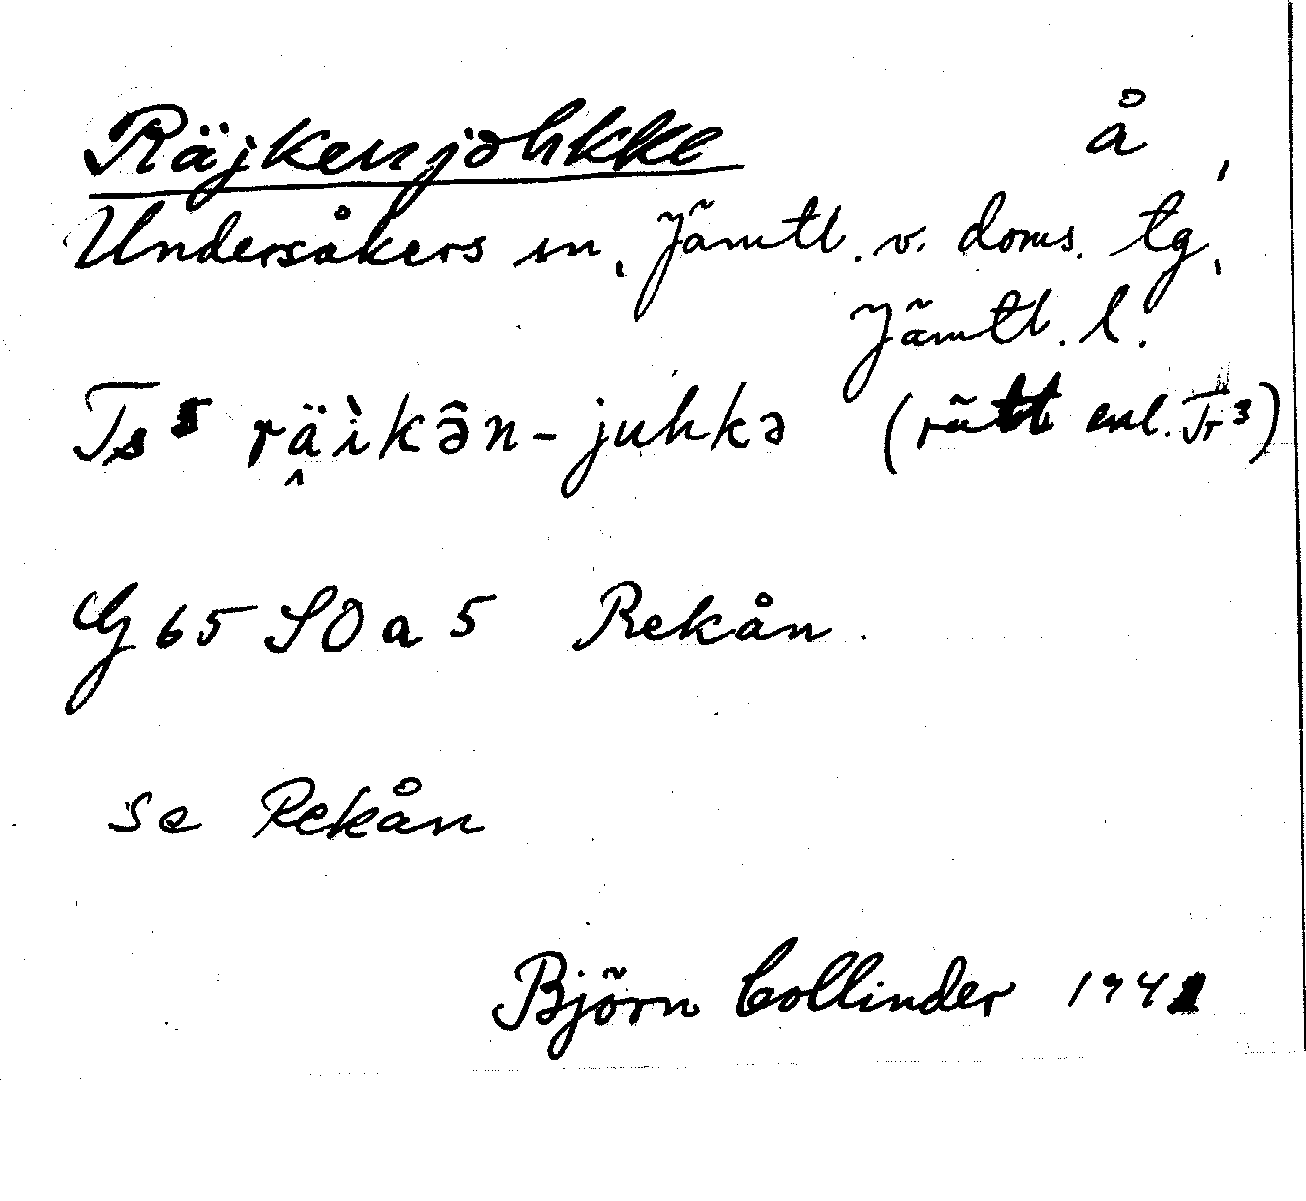 Räjkenjohkke å
Undersåkers sn, Jämtl. v. doms. tg,
Jämtl. l.
Ts 5 räìkə̂n-juhkə (rätt enl. Tr 3)
G 65 SO a 5 Rekån.
se Rekån
Björn Collinder 1941